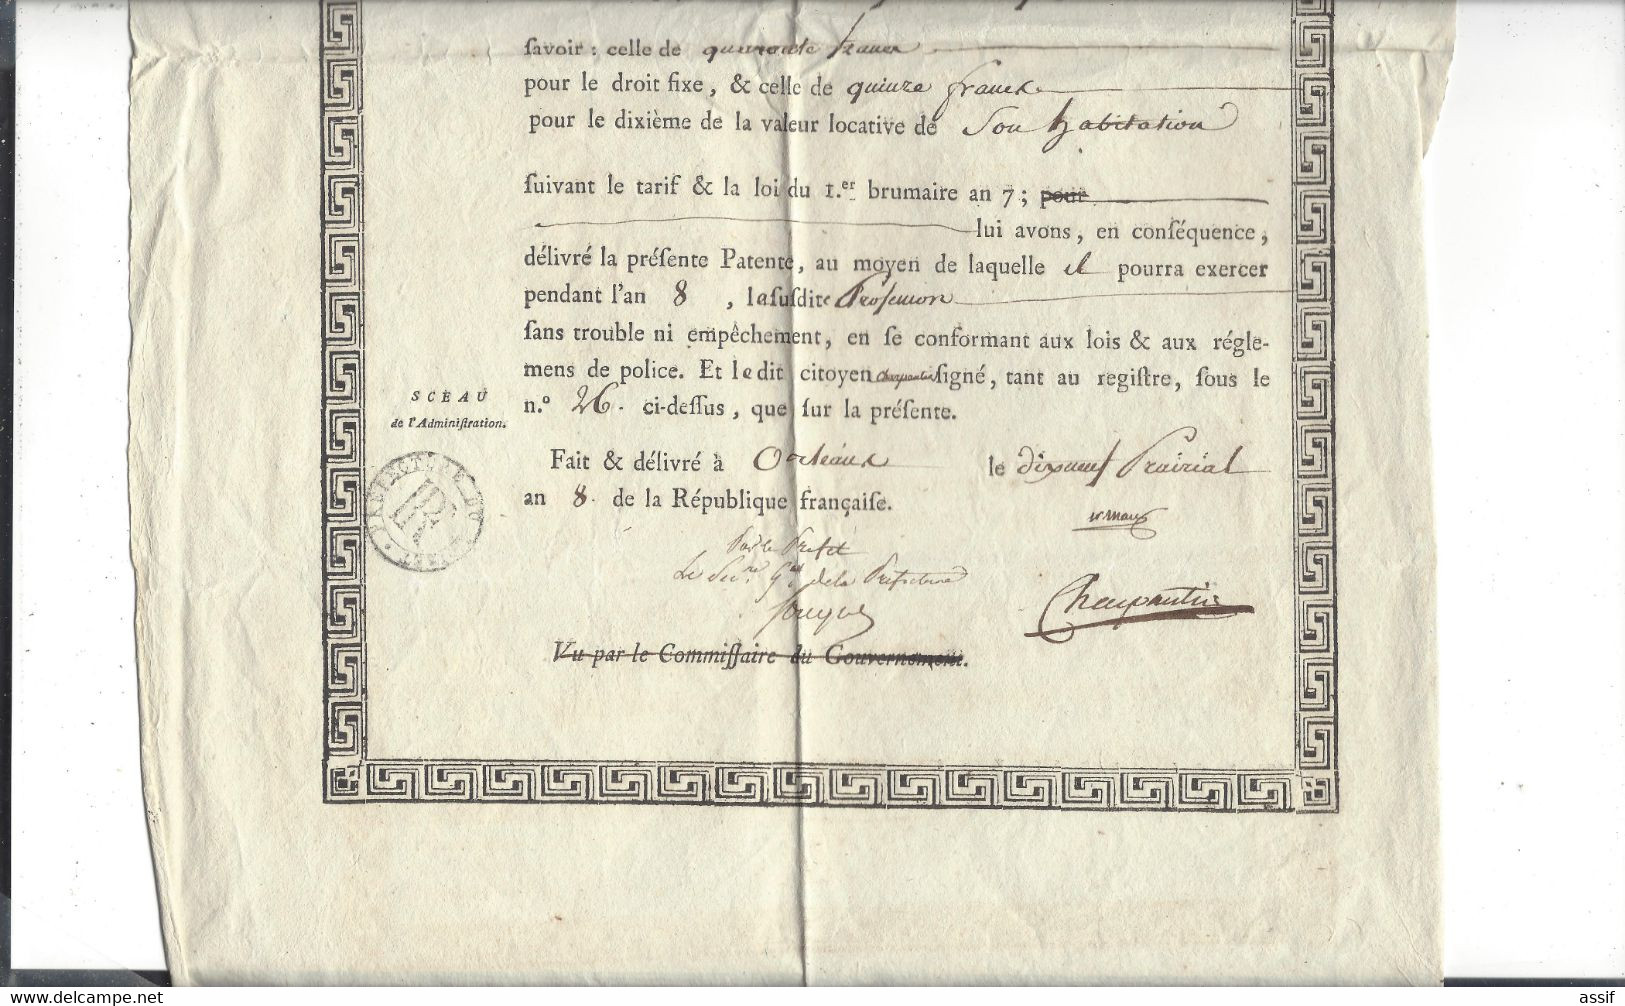 ſavoir : celle de quarante francs
pour le droit fixe, & celle de quinze francs
pour le dixième de la valeur locative de Son habitation
ſuivant le tarif & la loi du 1.er brumaire an 7 ; pour
lui avons, en conſéquence,
délivré la préſente Patente, au moyen de laquelle il pourra exercer
pendant l'an 8 , la ſuſdite Profession
ſans trouble ni empêchement, en ſe conformant aux lois & aux régle-
mens de police. Et le dit citoyen Charpentier ſigné, tant au regiſtre, ſous le
n.º 26. ci-deſſus, que ſur la préſente.
SCEAU
de l'Adminiſtration.
Fait & délivré à Orléans le dixneuf Prairial
an 8. de la République françaiſe.
PREFECTURE DU LOIRET
RF
Par le Prefet
Le Secre. Gal de la Prefecture
Charpentier
Vu par le Commiſſaire du Gouvernement.
delcampe.net
assif